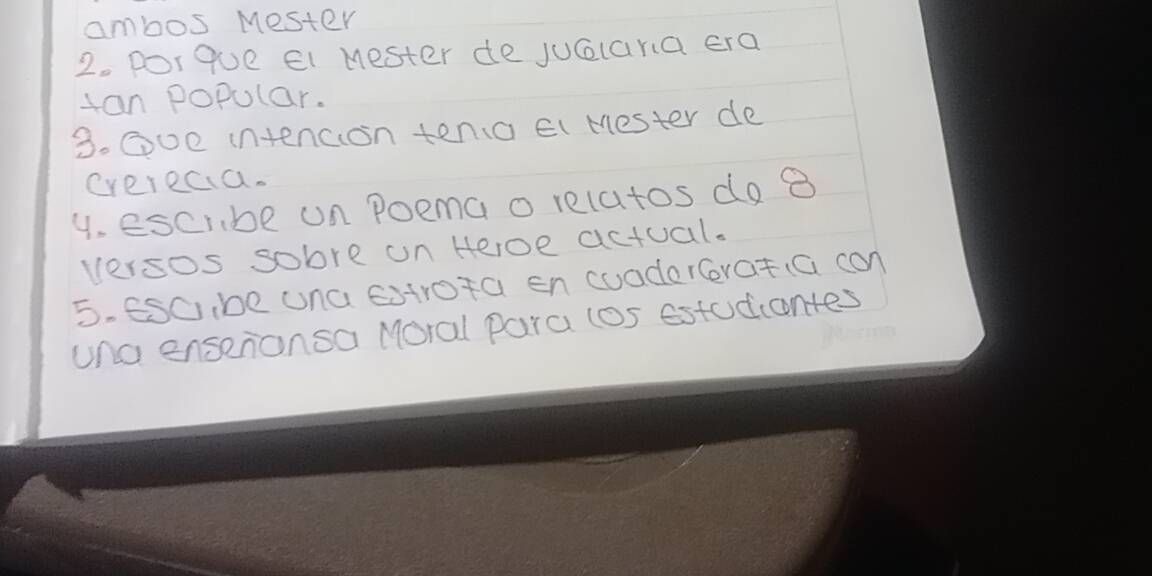 ambos Mester
2. Por que El Mester de Juglaria era
tan Popular.
3. Que intención tenia El Mester de
crerecia.
4. escribe un Poema o relatos de 8
versos sobre un Heroe actual.
5. Escribe una Estrofa En cuadernrafia con
una enseñansa Moral Para los estudiantes
Norma